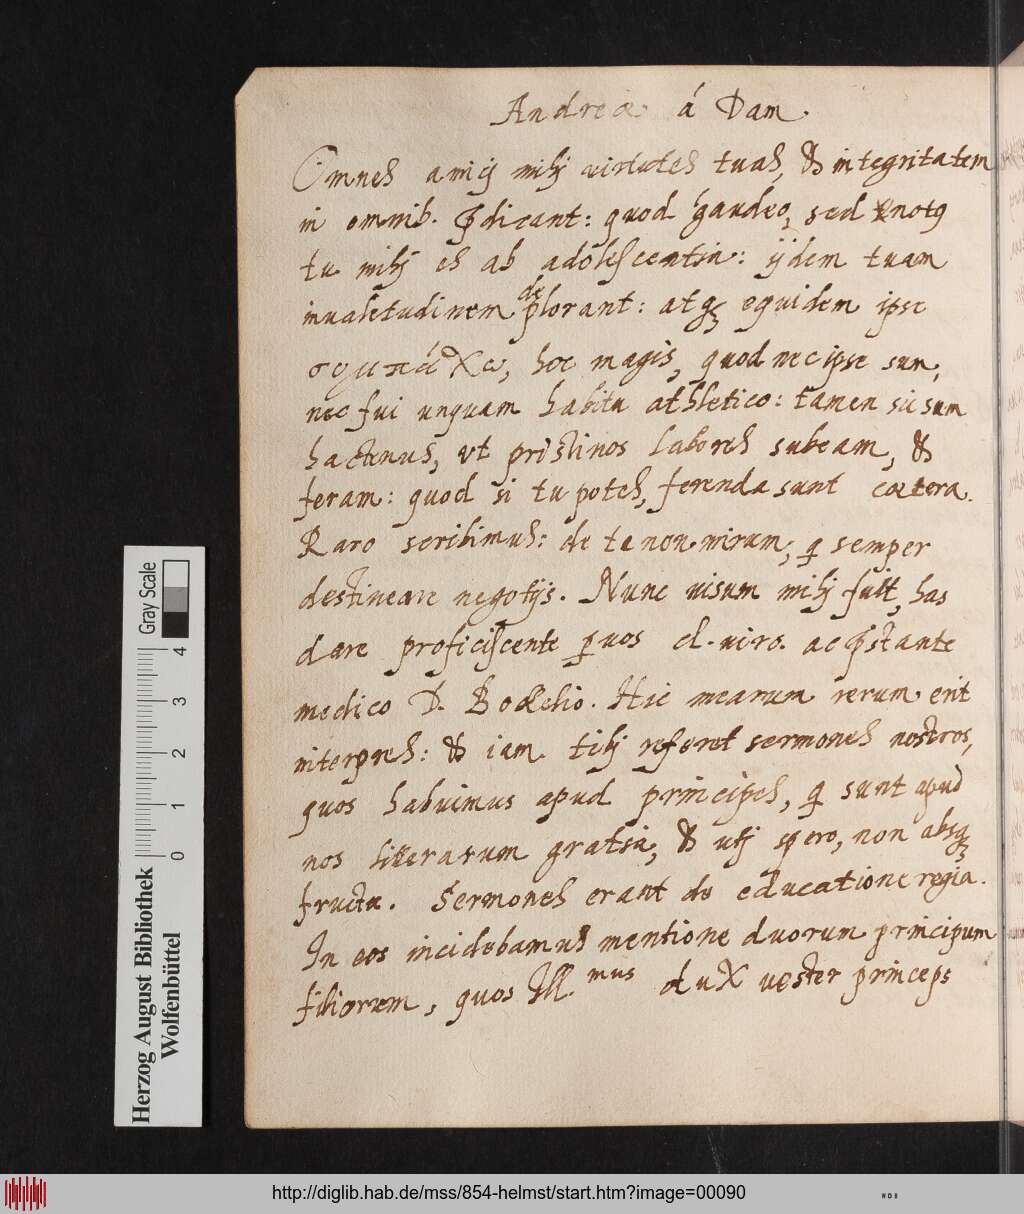 Andreæ á Dam.
Omnes amicij mihj virtutes tuas, & integritatem
in omnib. prædicant: quod gaudeo, sed & notus
tu mihj es ab adolescentia: ijdem tuam
inualetudinem deplorant: atq; equidem ipse
συμπάχω, hoc magis, quod nec ipse sum,
nec fui unquam habitu athletico: tamen sic sum
hactenus, vt pristinos labores subeam, &
feram: quod si tu potes, ferenda sunt cætera.
Raro scribimus: de te non mirum, q semper
destineare negotijs. Nunc uisum mihj fuit, has
dare proficiscente quos cl. viro. ac præstante
medico D. Boekelio. Hic mearum rerum erit
interpres: & iam tibj referet sermones nostros,
quos habuimus apud principes, q sunt apud
nos litterarum gratia, & utj spero, non absq;
fructu. Sermones erant de educatione regia.
In eos incidebamus mentione duorum principum
filiorum, quos Ill.mus dux vester princeps
Herzog August Bibliothek
Wolfenbüttel
Gray Scale
0 1 2 3 4
http://diglib.hab.de/mss/854-helmst/start.htm?image=00090